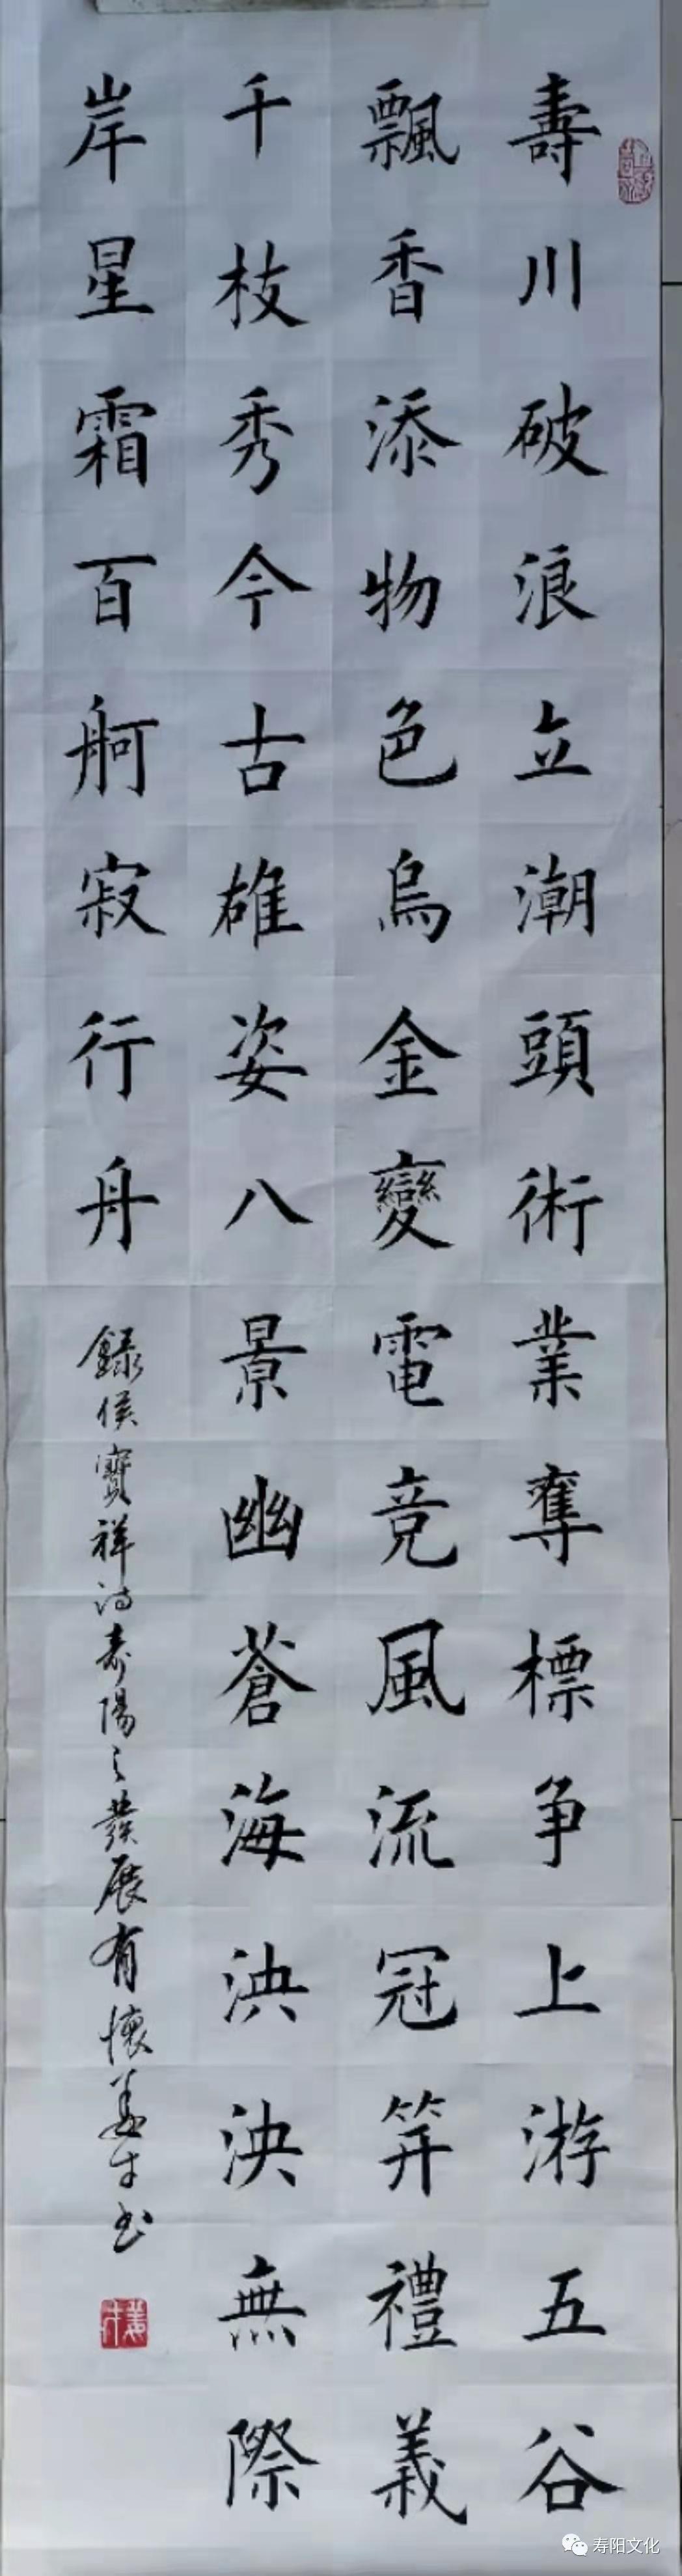 壽川破浪立潮頭術業奪標争上游五谷
飄香添物色烏金變電竞風流冠笄禮義
千枝秀今古雄姿八景幽蒼海泱泱無際
岸星霜百舸寂行舟
録侯寶祥诗寿陽之發展有懷姜才书
寿阳文化